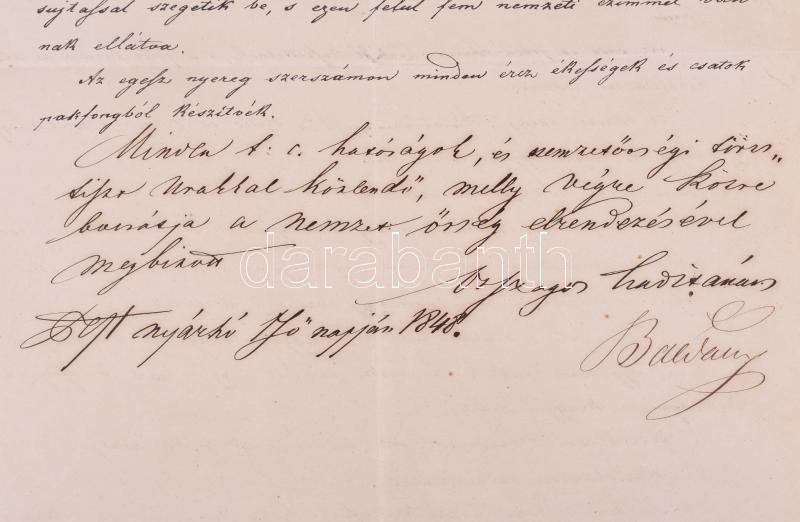 sujtással szegetik be, s ezen felul fem nemzeti czimmel van
nak ellátva.
Az egesz nyereg szerszámon minden ércz ékességek és csatok
pakfongból készítvék.
Minden t: c. hatóságok, és nemzetőrségi törzs„
tiszt Urakkal közlendő, melly végre közre
bocsátja a nemzet őrség elrendezésével
megbizott
darabanth
Országos haditanács
Pest nyárhó 7ő napján 1848.
Baldacci